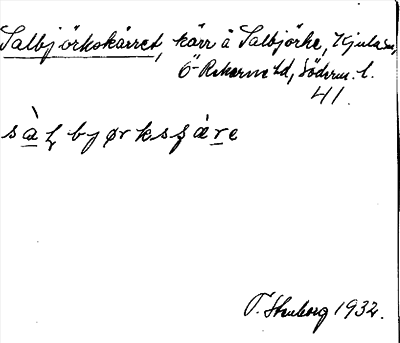 Salbjörkskärret, kärr å Salbjörke, Kjula sn,
Ö-Rekarne hd, Söderm. l.
41.
sàlbyørksʂære
T. Stenborg 1932.